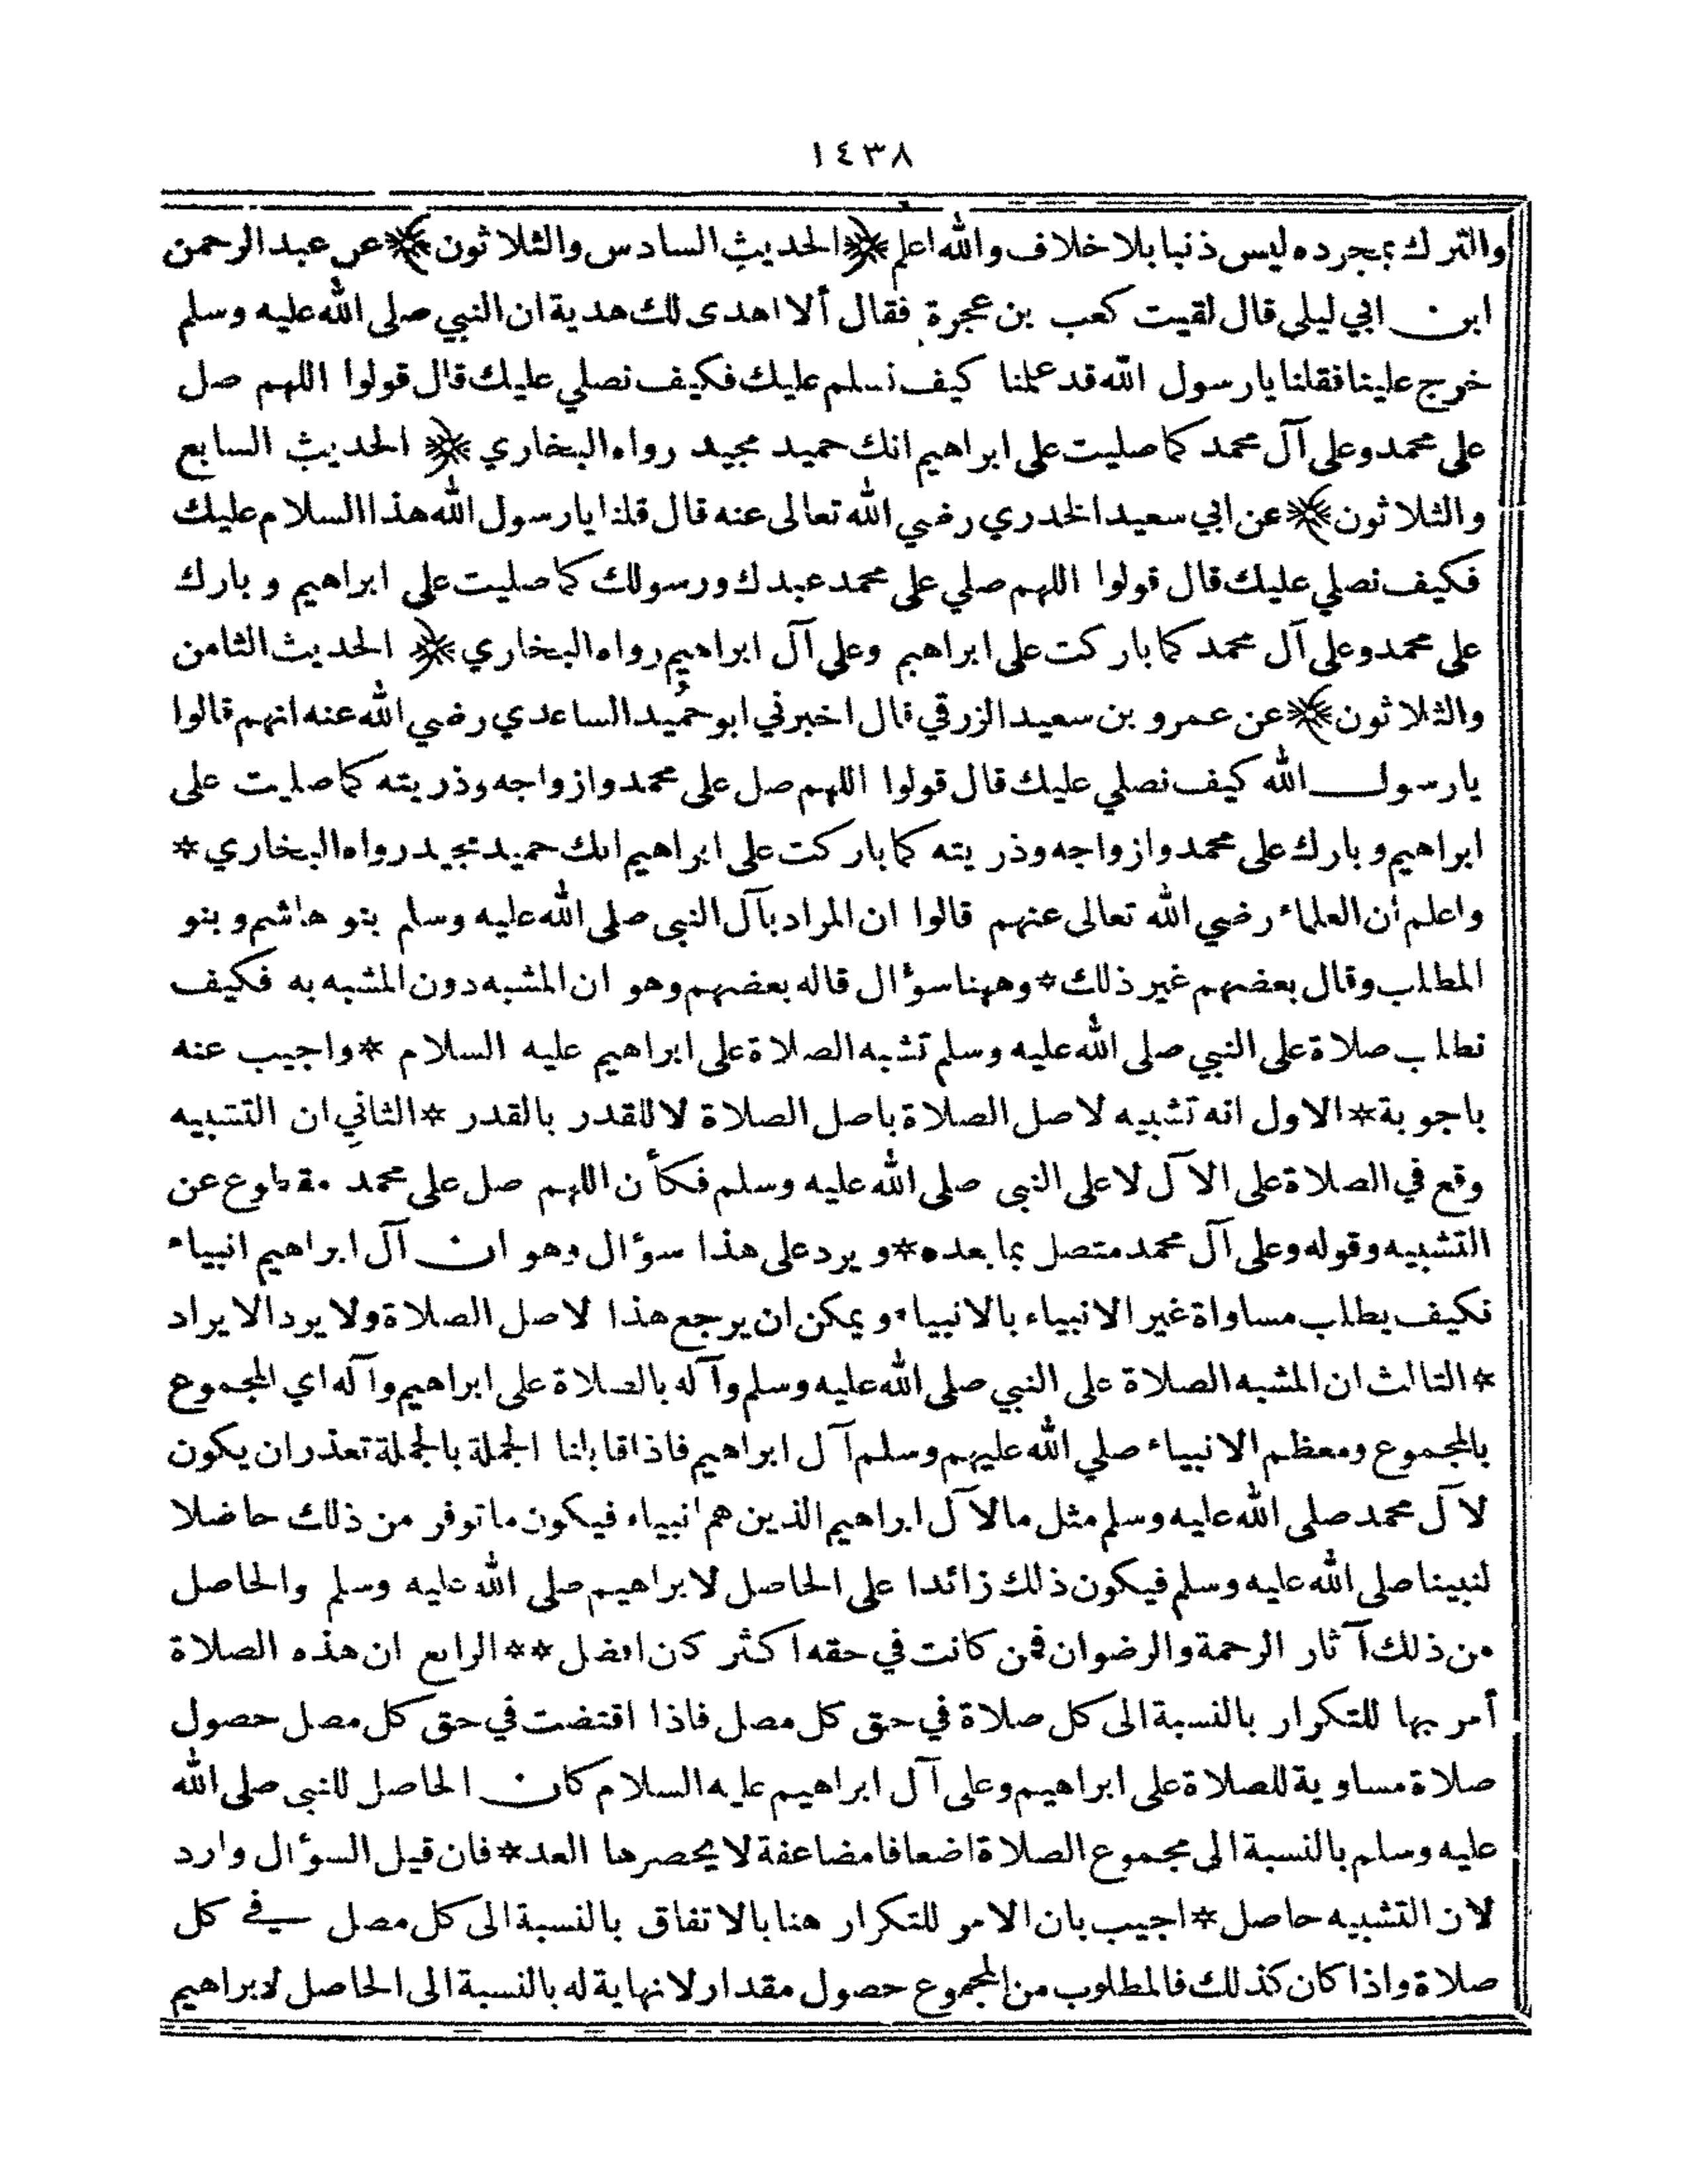 ١٤٣٨
والترك بمجرده ليس ذنبا بلا خلاف والله اعلم ﴿الحديث السادس والثلاثون﴾ عن عبد الرحمن
ابن ابي ليلى قال لقيت كعب بن عجرة فقال ألا اهدى لك هدية ان النبي صلى الله عليه وسلم
خرج علينا فقلنا يا رسول الله قد علمنا كيف نسلم عليك فكيف نصلي عليك قال قولوا اللهم صل
على محمد وعلى آل محمد كما صليت على ابراهيم انك حميد مجيد رواه البخاري ﴿الحديث السابع
والثلاثون﴾ عن ابي سعيد الخدري رضي الله تعالى عنه قال قلنا يا رسول الله هذا السلام عليك
فكيف نصلي عليك قال قولوا اللهم صلي على محمد عبدك ورسولك كما صليت على ابراهيم وبارك
على محمد وعلى آل محمد كما باركت على ابراهيم وعلى آل ابراهيم رواه البخاري ﴿الحديث الثامن
والثلاثون﴾ عن عمرو بن سعيد الزرقي قال اخبرني ابو حُميد الساعدي رضي الله عنه انهم قالوا
يا رسول الله كيف نصلي عليك قال قولوا اللهم صل على محمد وازواجه وذريته كما صليت على
ابراهيم وبارك على محمد وازواجه وذريته كما باركت على ابراهيم انك حميد مجيد رواه البخاري *
واعلم أن العلماء رضي الله تعالى عنهم قالوا ان المراد بآل النبى صلى الله عليه وسلم بنو هاشم وبنو
المطلب وقال بعضهم غير ذلك * وههنا سؤال قاله بعضهم وهو ان المشبه دون المشبه به فكيف
نطلب صلاة على النبي صلى الله عليه وسلم تشبه الصلاة على ابراهيم عليه السلام * واجيب عنه
باجوبة * الاول انه تشبيه لاصل الصلاة باصل الصلاة لا للقدر بالقدر * الثاني ان التشبيه
وقع في الصلاة على الآل لا على النبى صلى الله عليه وسلم فكأن اللهم صل على محمد مقطوع عن
التشبيه وقوله وعلى آل محمد متصل بما بعده * ويرد على هذا سؤال وهو ان آل ابراهيم انبياء
فكيف يطلب مساواة غير الانبياء بالانبياء ويمكن ان يرجع هذا لاصل الصلاة ولا يرد الايراد
* الثالث ان المشبه الصلاة على النبي صلى الله عليه وسلم وآله بالصلاة على ابراهيم وآله اي المجموع
بالمجموع ومعظم الانبياء صلي الله عليهم وسلم آل ابراهيم فاذا قابلنا الجملة بالجملة تعذر ان يكون
لآل محمد صلى الله عليه وسلم مثل ما لآل ابراهيم الذين هم انبياء فيكون ما توفر من ذلك حاضلا
لنبينا صلى الله عليه وسلم فيكون ذلك زائدا على الحاصل لابراهيم صلى الله عليه وسلم والحاصل
من ذلك آثار الرحمة والرضوان فمن كانت في حقه اكثر كن افضل ** الرابع ان هذه الصلاة
أمر بها للتكرار بالنسبة الى كل صلاة في حق كل مصل فاذا اقتضت في حق كل مصل حصول
صلاة مساوية للصلاة على ابراهيم وعلى آل ابراهيم عليه السلام كان الحاصل للنبى صلى الله
عليه وسلم بالنسبة الى مجموع الصلاة اضعافا مضاعفة لا يحصرها العد * فان قيل السؤال وارد
لان التشبيه حاصل * اجيب بان الامر للتكرار هنا بالاتفاق بالنسبة الى كل مصل في كل
صلاة واذا كان كذلك فالمطلوب من المجموع حصول مقدار لا نهاية له بالنسبة الى الحاصل لابراهيم